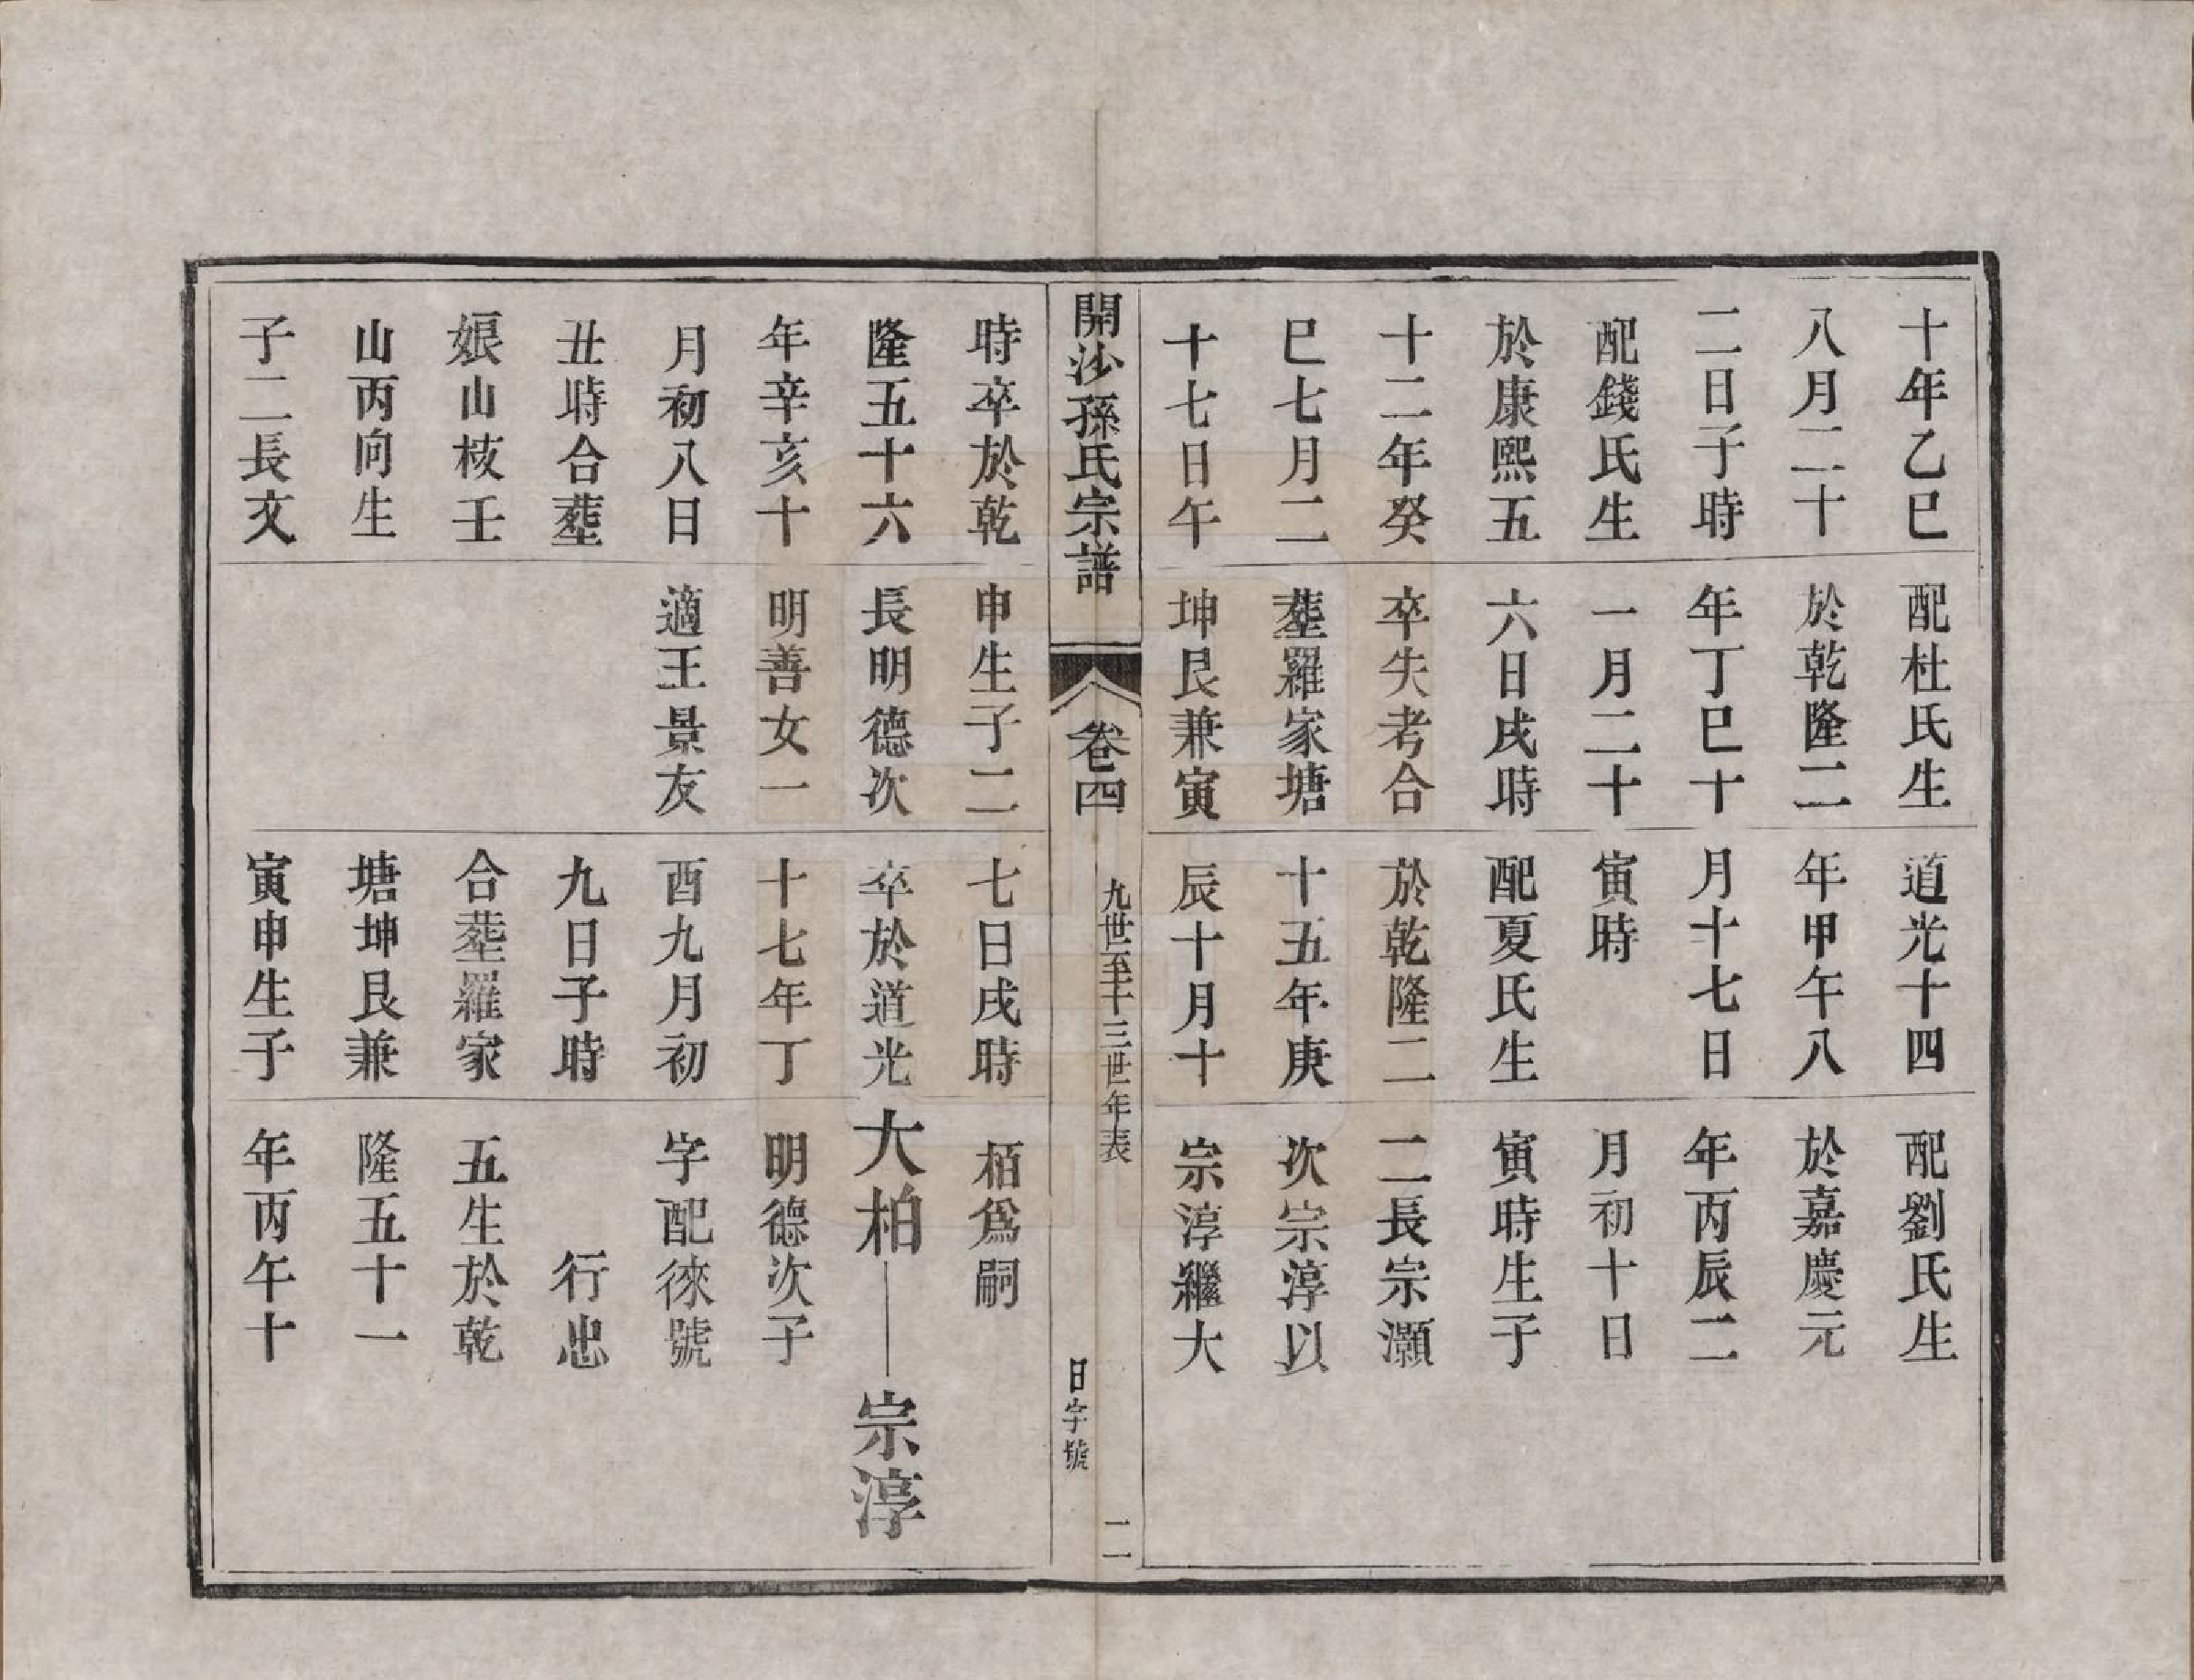 十年乙巳
八月二十
二日子時
配錢氏生
於康熙五
十二年癸
巳七月二
十七日午
配杜氏生
於乾隆二
年丁巳十
一月二十
六日戌時
卒失考合
塟羅家塘
坤艮兼寅
道光十四
年甲午八
月十七日
寅時
配夏氏生
於乾隆二
十五年庚
辰十月十
配劉氏生
於嘉慶元
年丙辰二
月初十日
寅時生子
二長宗灝
次宗淳以
宗淳繼大
開沙孫氏宗譜
卷四
九世至十三世年表
日字號
二
時卒於乾
隆五十六
年辛亥十
月初八日
丑時合塟
娘山枝壬
山丙向生
子二長文
申生子二
長明德次
明善女一
適王景友
七日戌時
卒於道光
十七年丁
酉九月初
九日子時
合塟羅家
塘坤艮兼
寅申生子
栢爲嗣
大柏—宗淳
明德次子
字配徠號
行忠
五生於乾
隆五十一
年丙午十